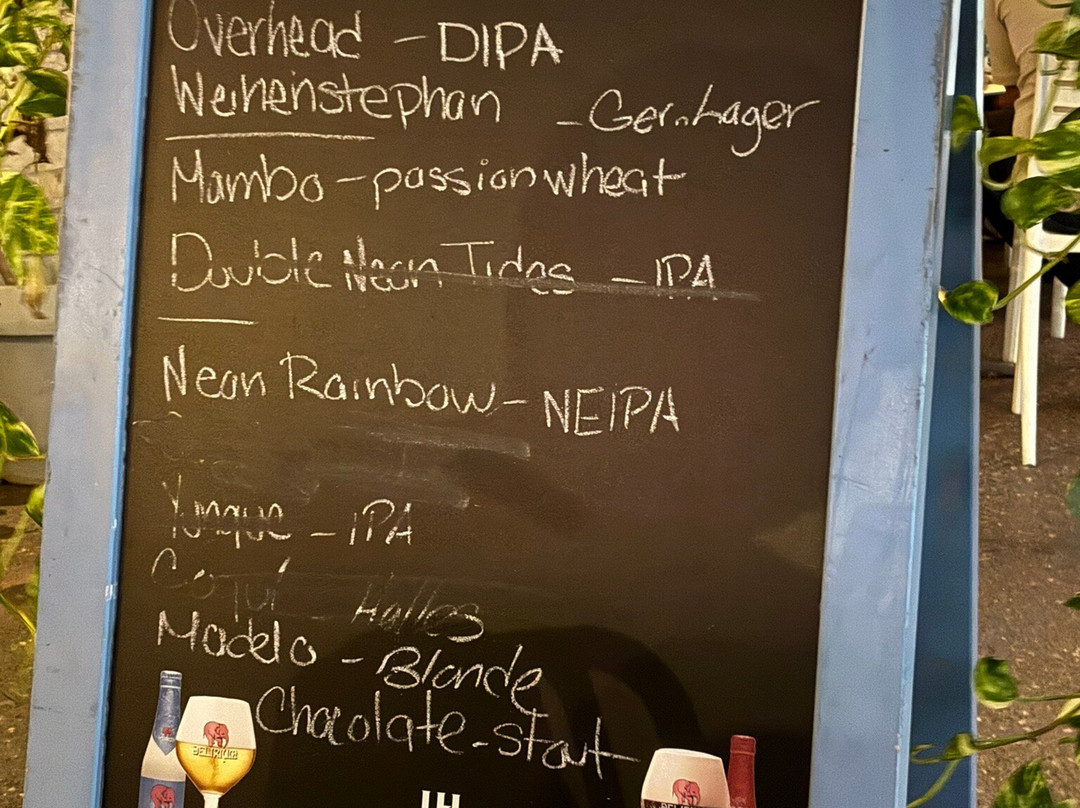 Overhead - DIPA
Weihenstephan - Ger. Lager
Mambo - passion wheat
Double Neon Tides - IPA
Neon Rainbow - NEIPA
Yunque - iPA
Coquí Halles
Modelo - Blonde
Chocolate - stout
DELIRIUM